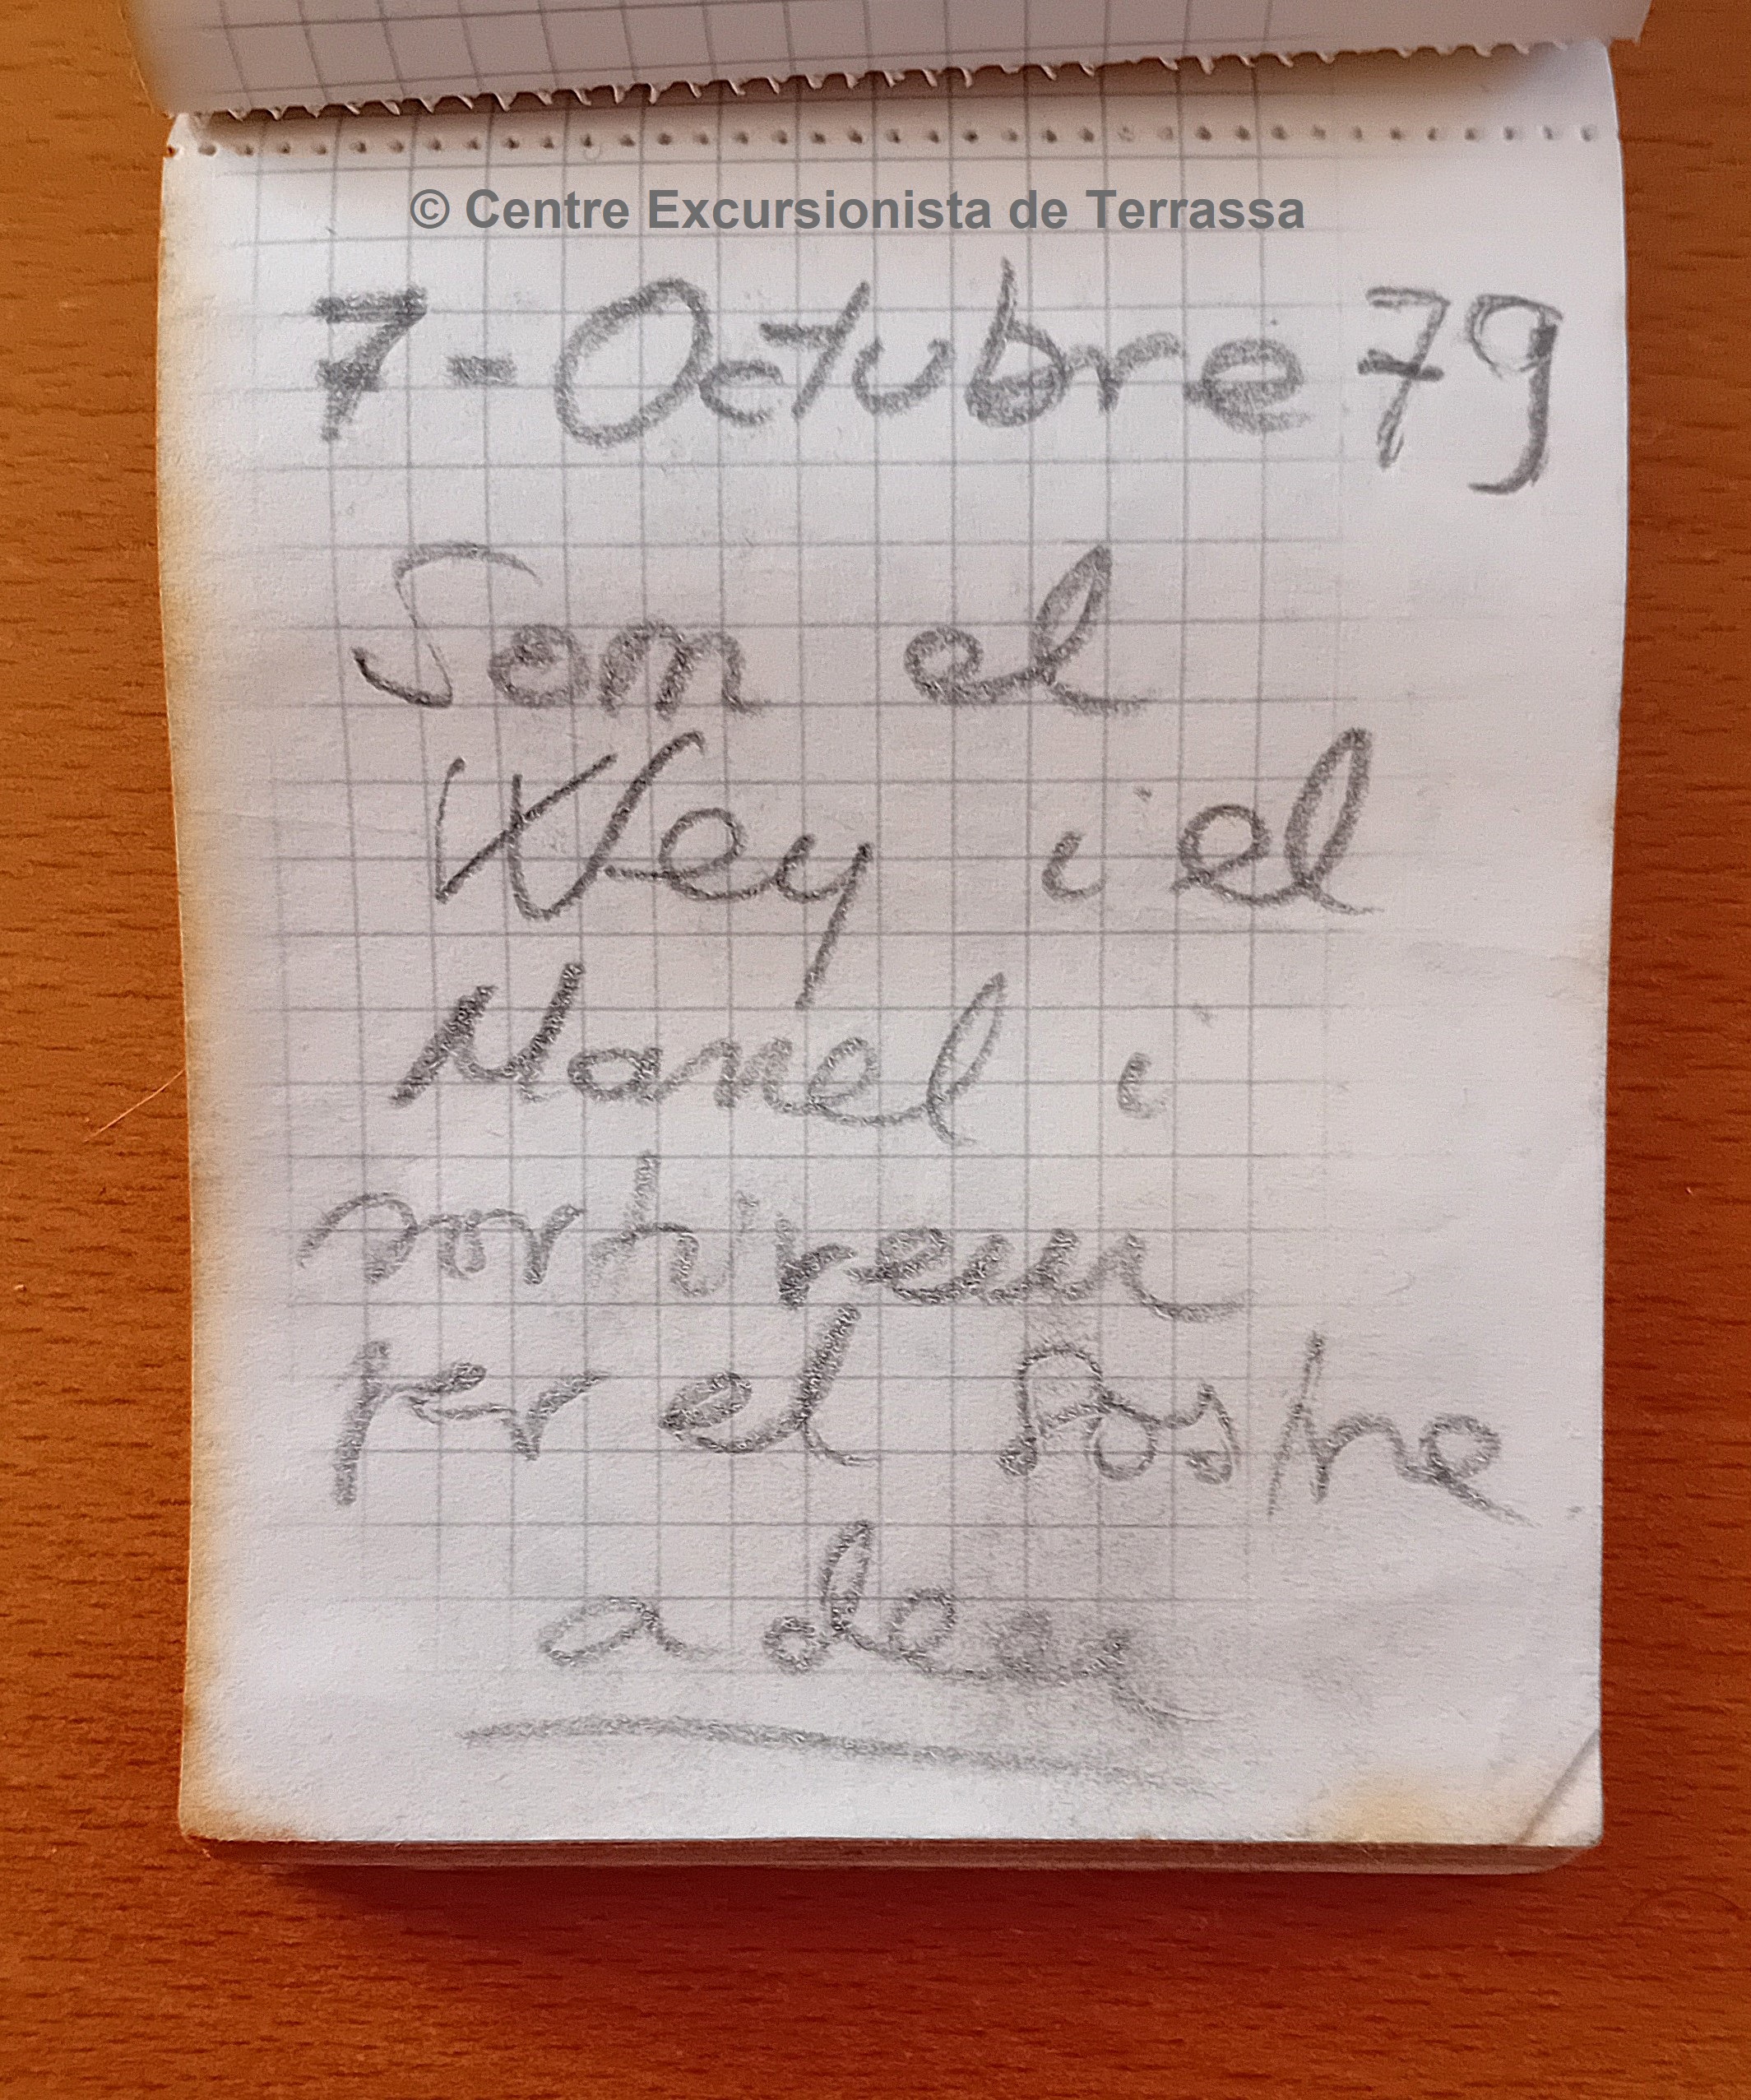 © Centre Excursionista de Terrassa
7-Octubre 79
Som el
Wey i el
Manel i
sortireu
per el Sostre
a deu